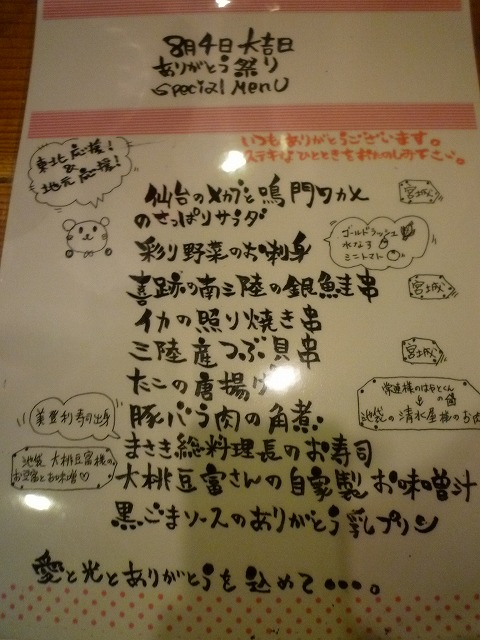 8月4日 大吉日
ありがとう祭り
Special Menu
いつもありがとうございます。
ステキなひとときをおたのしみ下さい。
東北応援!
&
地元応援!
仙台のメカブと鳴門ワカメ
のさっぱりサラダ
宮城
彩り野菜のお刺身
ゴールドラッシュ
水なす
ミニトマト
喜跡の南三陸の銀鮭串
宮城
イカの照り焼き串
三陸産つぶ貝串
宮城
たこの唐揚げ
常連様のはやとくん
の
池袋の清水屋様のお肉
豚バラ肉の角煮
美登利寿司出身
まさき総料理長のお寿司
池袋 大桃豆富様の
お豆富とお味噌♡
大桃豆富さんの自家製お味噌汁
黒ごまソースのありがとう乳プリン
愛と光とありがとうを込めて・・・。